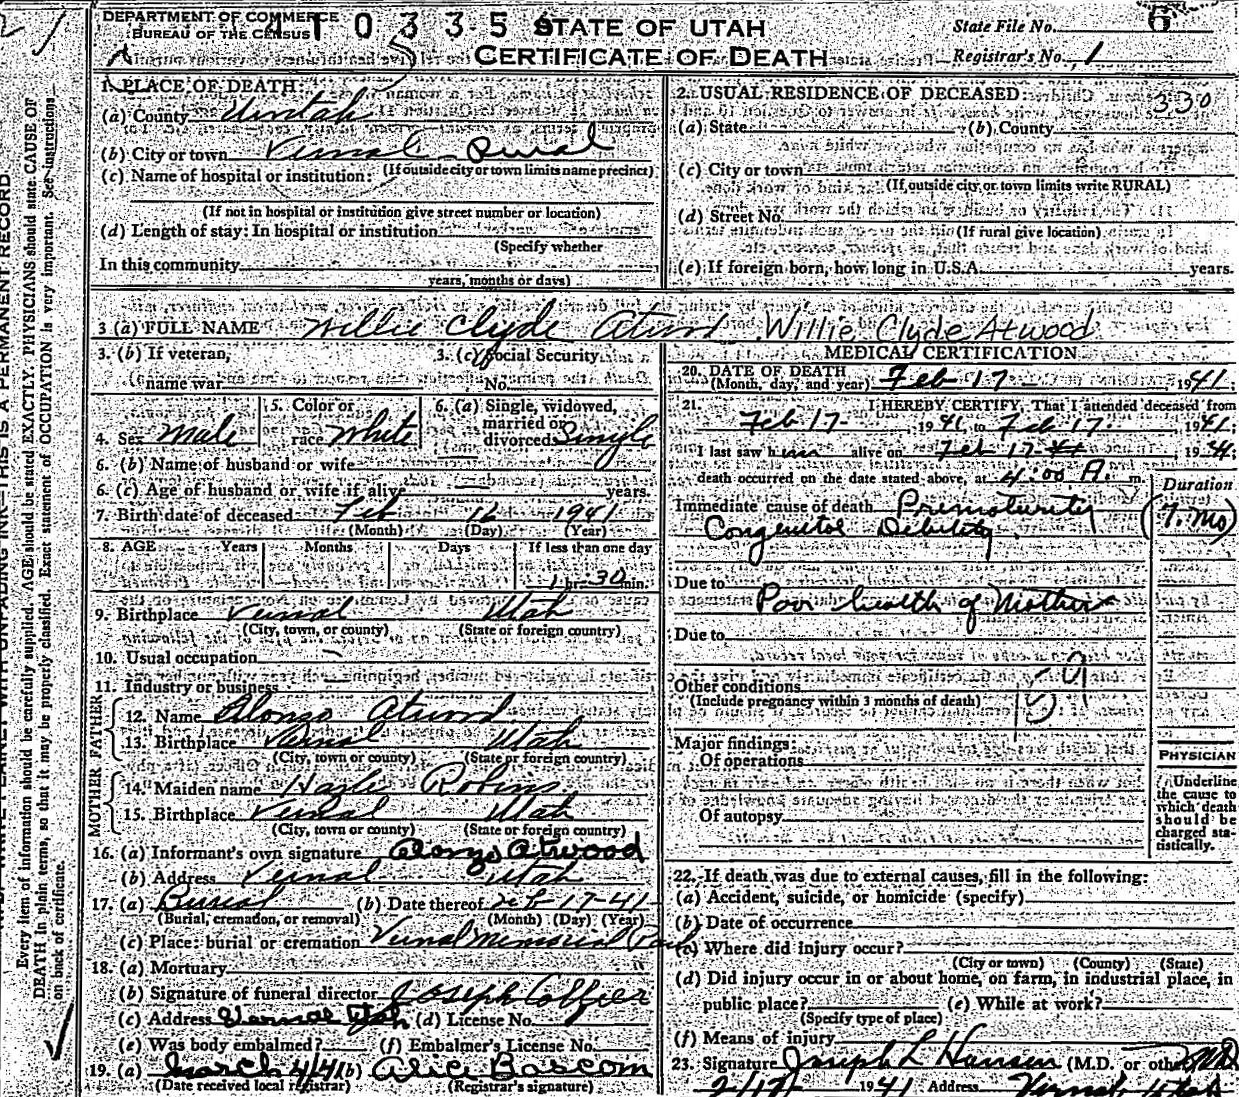 DEPARTMENT OF COMMERCE
BUREAU OF THE CENSUS
1 0 3 3 5
STATE OF UTAH
CERTIFICATE OF DEATH
State File No. 6
Registrar's No. 1
1. PLACE OF DEATH:
(a) County Uintah
(b) City or town Vernal - Rural
(If outside city or town limits name precinct)
(c) Name of hospital or institution:
(If not in hospital or institution give street number or location)
(d) Length of stay: In hospital or institution
(Specify whether
In this community
years, months or days)
2. USUAL RESIDENCE OF DECEASED: 330
(a) State (b) County
(c) City or town
(If outside city or town limits write RURAL)
(d) Street No.
(If rural give location)
(e) If foreign born, how long in U.S.A. years.
3 (a) FULL NAME Willie Clyde Atwood Willie Clyde Atwood
3. (b) If veteran,
name war
3. (c) Social Security
No.
4. Sex Male
5. Color or
race White
6. (a) Single, widowed,
married or
divorced Single
6. (b) Name of husband or wife
6. (c) Age of husband or wife if alive years.
7. Birth date of deceased Feb 16 1941
(Month) (Day) (Year)
8. AGE Years Months Days If less than one day
1 hr. 30 min.
9. Birthplace Vernal Utah
(City, town, or county) (State or foreign country)
10. Usual occupation
11. Industry or business
FATHER
12. Name Alonzo Atwood
13. Birthplace Vernal Utah
(City, town or county) (State or foreign country)
MOTHER
14. Maiden name Hazle Robins
15. Birthplace Vernal Utah
(City, town or county) (State or foreign country)
16. (a) Informant's own signature Alonzo Atwood
(b) Address Vernal Utah
17. (a) Burial (b) Date thereof Feb 17-41
(Burial, cremation, or removal) (Month) (Day) (Year)
(c) Place: burial or cremation Vernal Memorial Park
18. (a) Mortuary
(b) Signature of funeral director Joseph Collier
(c) Address Vernal Utah (d) License No.
(e) Was body embalmed? (f) Embalmer's License No.
19. (a) March 4/41 (b) Alice Bascom
(Date received local registrar) (Registrar's signature)
MEDICAL CERTIFICATION
20. DATE OF DEATH
(Month, day, and year) Feb 17 1941;
21. I HEREBY CERTIFY, That I attended deceased from
Feb 17- , 1941, to Feb 17- , 1941;
I last saw him alive on Feb 17 , 1941;
death occurred on the date stated above, at 4:00 A. m.
Duration
Immediate cause of death Prematurity (7. Mo)
Congenital Debility
Due to
Poor health of Mother
Due to
Other conditions
(Include pregnancy within 3 months of death)
159
Major findings:
Of operations
Of autopsy
PHYSICIAN
Underline
the cause to
which death
should be
charged sta-
tistically.
22. If death was due to external causes, fill in the following:
(a) Accident, suicide, or homicide (specify)
(b) Date of occurrence
(c) Where did injury occur?
(City or town) (County) (State)
(d) Did injury occur in or about home, on farm, in industrial place, in
public place? (e) While at work?
(Specify type of place)
(f) Means of injury
23. Signature Joseph L Hansen (M.D. or other) MD
2/17 1941 Address Vernal Utah
Every item of information should be carefully supplied. AGE should be stated EXACTLY. PHYSICIANS should state CAUSE OF
DEATH in plain terms, so that it may be properly classified. Exact statement of OCCUPATION is very important. See instructions
on back of certificate.